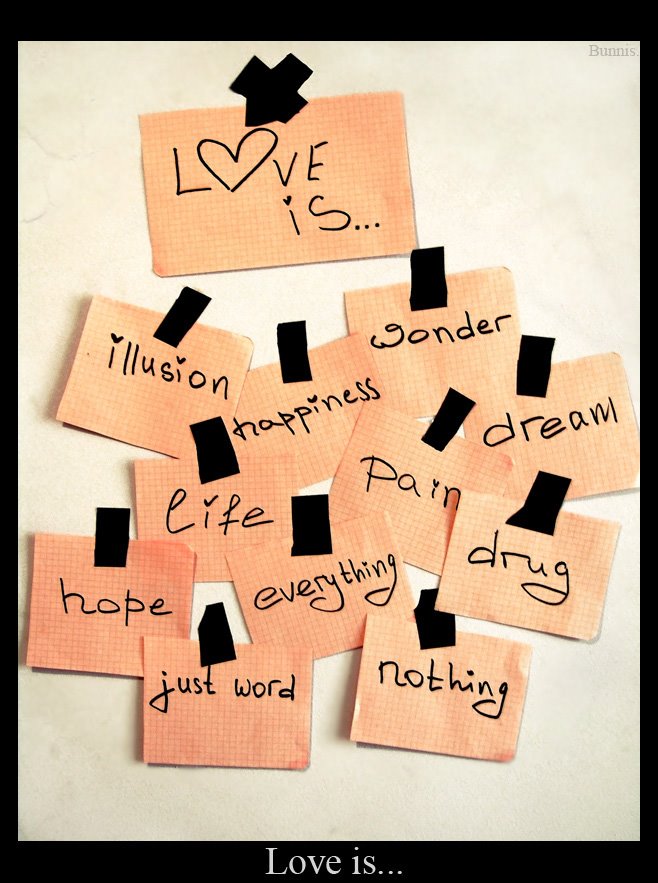 Bunnis.
LOVE
is...
illusion
happiness
wonder
dream
life
pain
drug
hope
everything
just word
nothing
Love is...